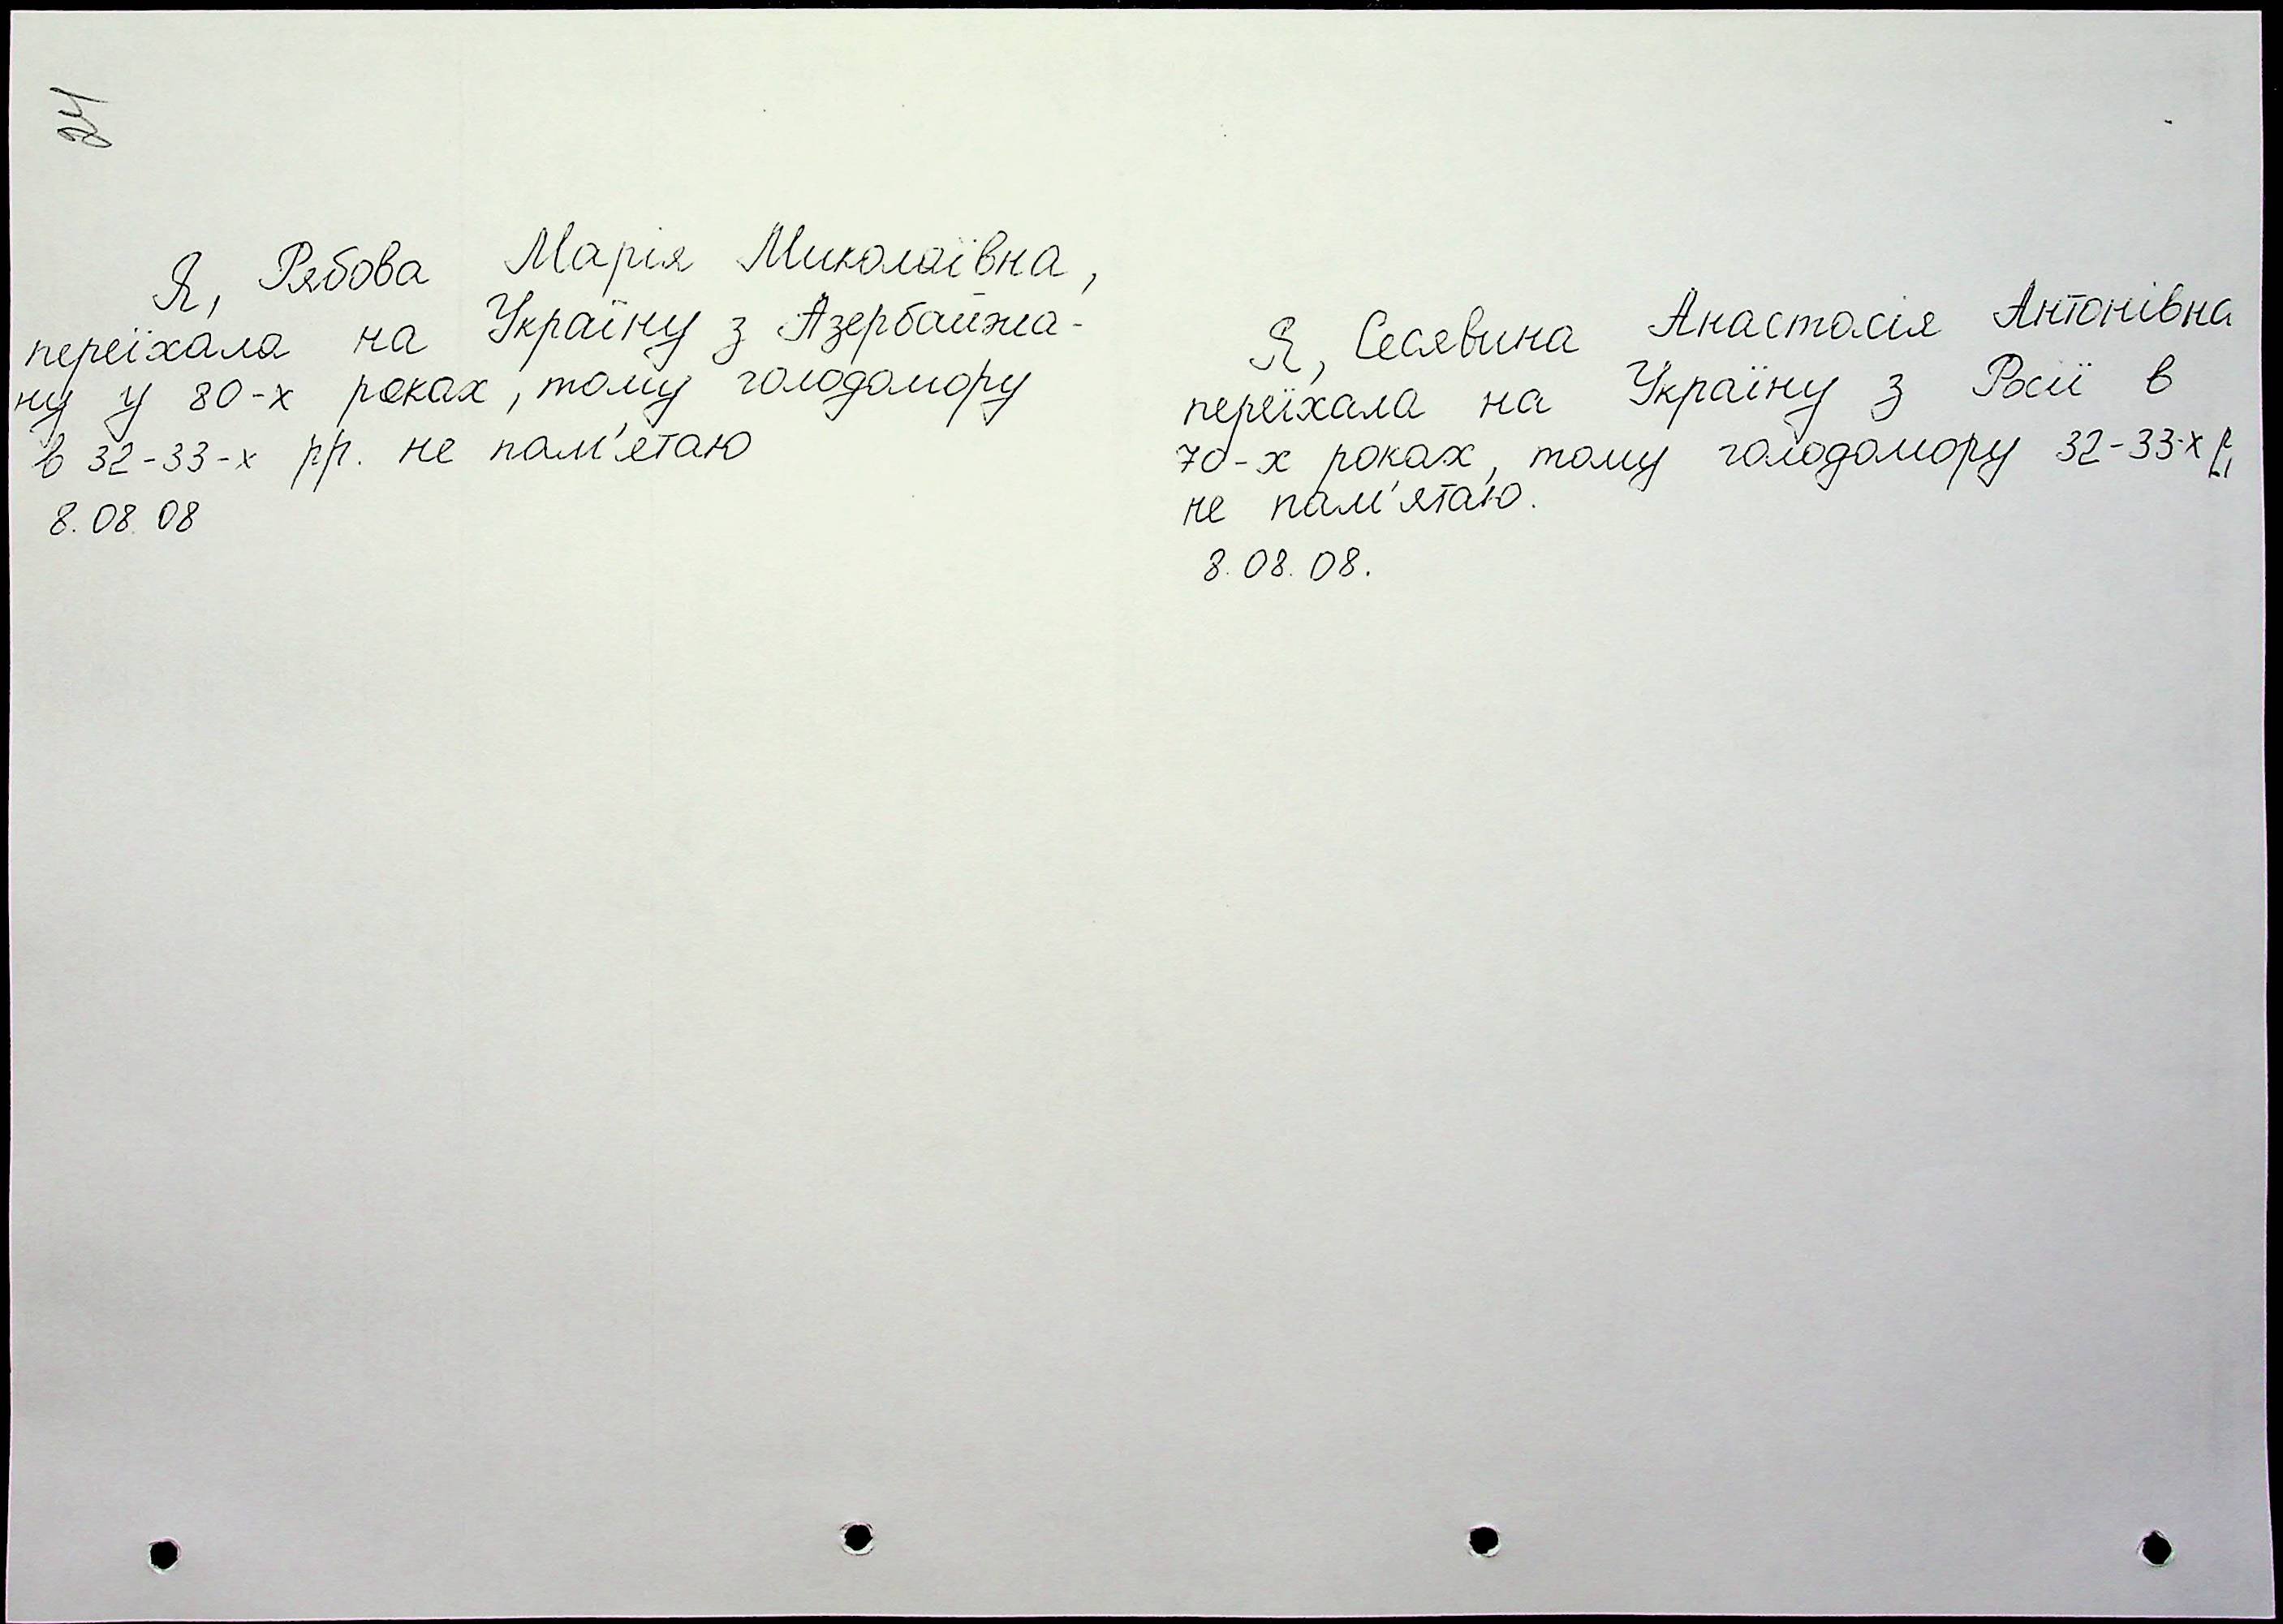 24
Я, Рябова Марія Миколаївна,
переїхала на Україну з Азербайжа-
ну у 80-х роках, тому голодомору
в 32-33-х рр. не пам'ятаю
8.08.08
Я, Сесявина Анастасія Антонівна
переїхала на Україну з Росії в
70-х роках, тому голодомору 32-33-х р.
не пам'ятаю.
8.08.08.